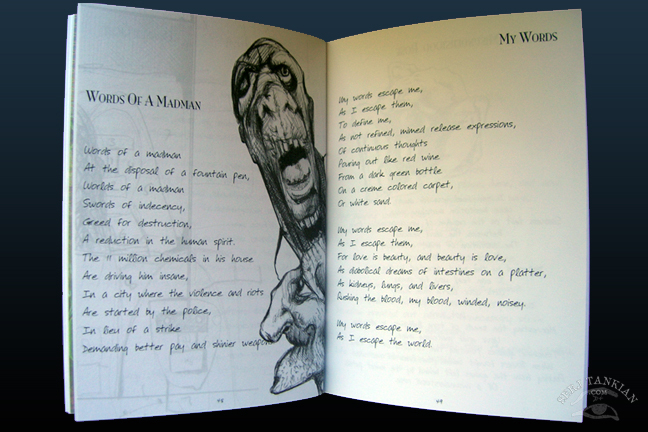 WORDS OF A MADMAN
Words of a madman
At the disposal of a fountain pen,
Worlds of a madman
Swords of indecency,
Greed for destruction,
A reduction in the human spirit.
The 11 million chemicals in his house
Are driving him insane,
In a city where the violence and riots
Are started by the police,
In lieu of a strike
Demanding better pay and shinier weapo
48
MY WORDS
My words escape me,
As I escape them,
To define me,
As not refined, mimed release expressions,
Of continuous thoughts
Pouring out like red wine
From a dark green bottle
On a creme colored carpet,
Or white sand.
My words escape me,
As I escape them,
For love is beauty, and beauty is love,
As diabolical dreams of intestines on a platter,
As kidneys, lungs, and livers,
Rushing the blood, my blood, winded, noisey.
My words escape me,
As I escape the world.
49
SERJ TANKIAN
.COM